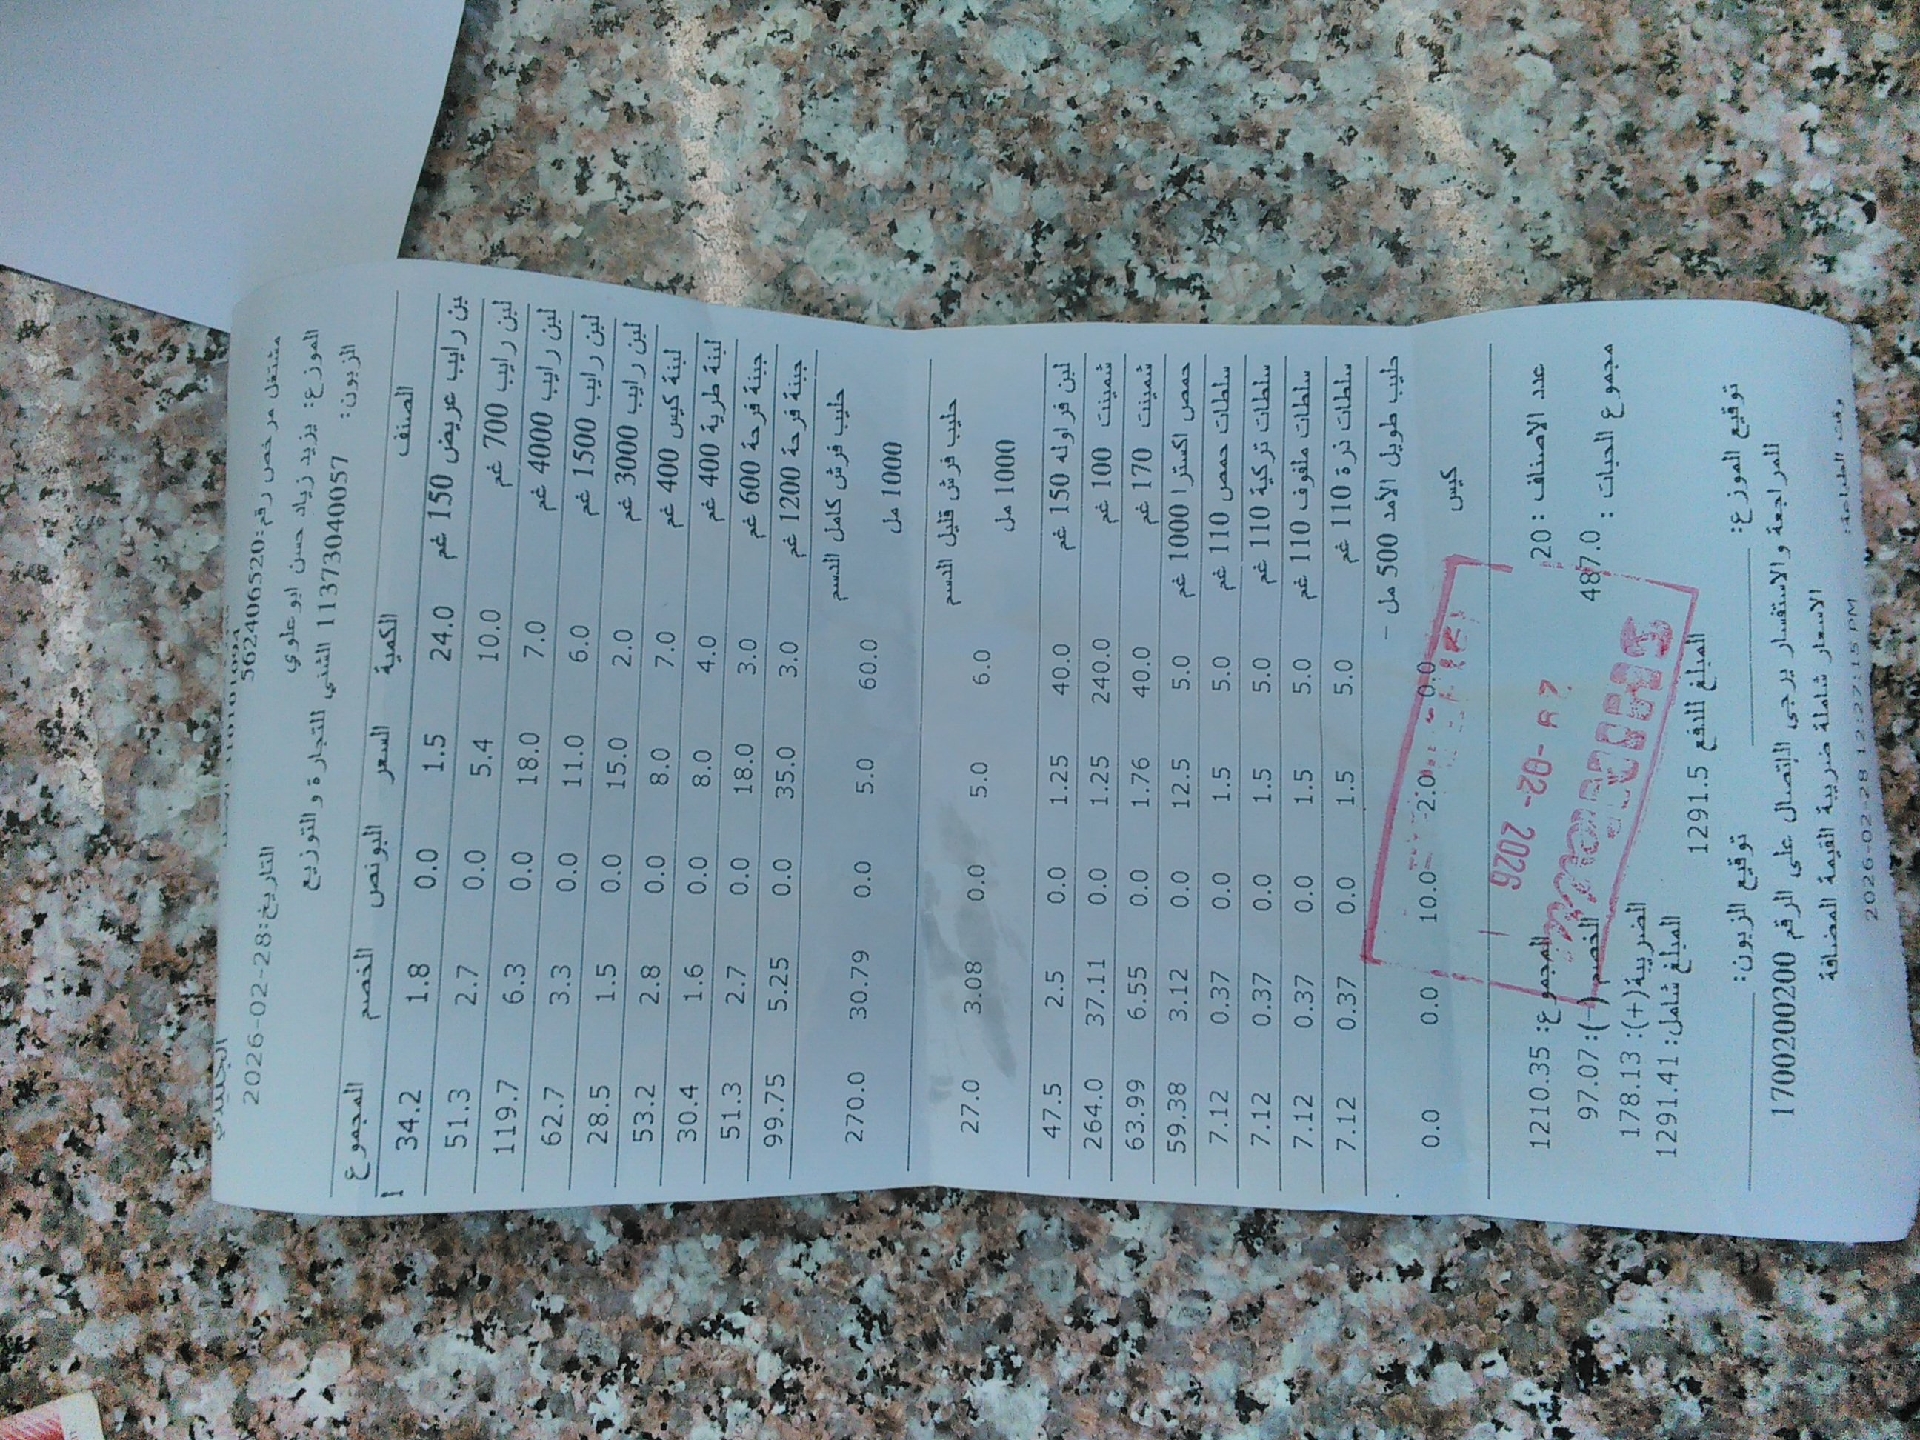 مشتغل مرخص رقم:562406520 التاريخ:2026-02-28
الموزع: يزيد زياد حسن ابو علوي
الزبون: 11373040057 الشني للتجارة والتوزيع
الصنف الكمية السعر البونص الخصم المجموع
لبن رايب عريض 150 غم 24.0 1.5 0.0 1.8 34.2
لبن رايب 700 غم 10.0 5.4 0.0 2.7 51.3
لبن رايب 4000 غم 7.0 18.0 0.0 6.3 119.7
لبن رايب 1500 غم 6.0 11.0 0.0 3.3 62.7
لبن رايب 3000 غم 2.0 15.0 0.0 1.5 28.5
لبنة كيس 400 غم 7.0 8.0 0.0 2.8 53.2
لبنة طرية 400 غم 4.0 8.0 0.0 1.6 30.4
جبنة فرحة 600 غم 3.0 18.0 0.0 2.7 51.3
جبنة فرحة 1200 غم 3.0 35.0 0.0 5.25 99.75
حليب فرش كامل الدسم 60.0 5.0 0.0 30.79 270.0
1000 مل
حليب فرش قليل الدسم 6.0 5.0 0.0 3.08 27.0
1000 مل
لبن فراوله 150 غم 40.0 1.25 0.0 2.5 47.5
شمينت 100 غم 240.0 1.25 0.0 37.11 264.0
شمينت 170 غم 40.0 1.76 0.0 6.55 63.99
حمص اكسترا 1000 غم 5.0 12.5 0.0 3.12 59.38
سلطات حمص 110 غم 5.0 1.5 0.0 0.37 7.12
سلطات تركية 110 غم 5.0 1.5 0.0 0.37 7.12
سلطات ملفوف 110 غم 5.0 1.5 0.0 0.37 7.12
سلطات ذرة 110 غم 5.0 1.5 0.0 0.37 7.12
حليب طويل الأمد 500 مل -
كيس 0.0 2.0 10.0 0.0 0.0
عدد الاصناف : 20 المجموع: 1210.35
مجموع الحبات : 487.0 الخصم(-): 97.07
الضريبة(+): 178.13
المبلغ شامل: 1291.41
المبلغ للدفع 1291.5
توقيع الموزع: توقيع الزبون:
للمراجعة والاستفسار يرجى الاتصال على الرقم 1700200200
الاسعار شاملة ضريبة القيمة المضافة
وقت الطباعة: 2026-02-28 12:27:15 PM